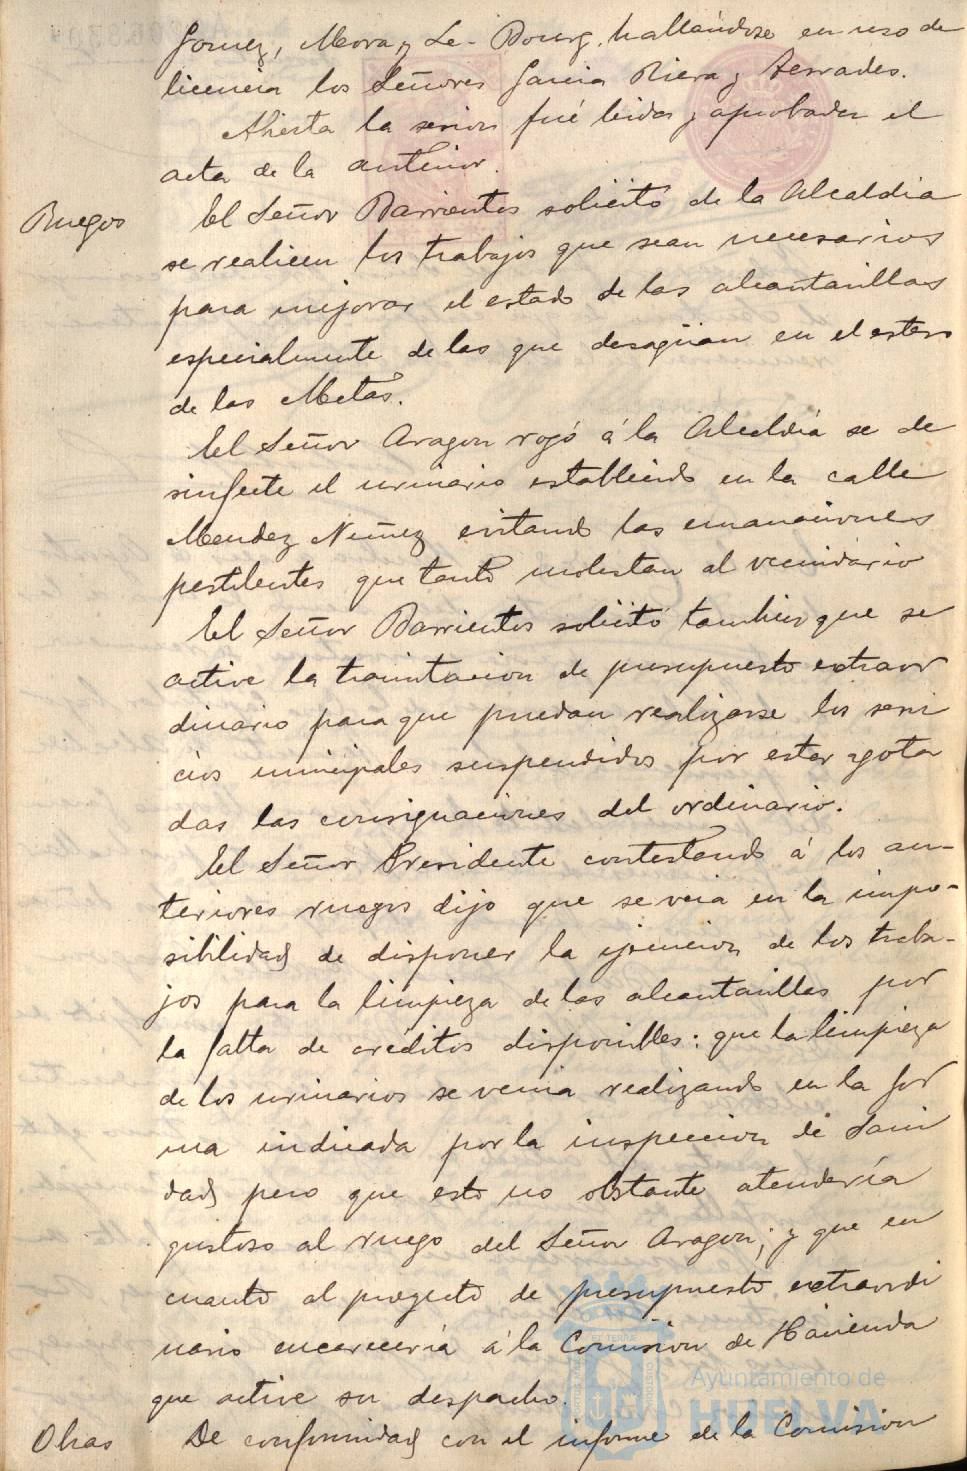 Gomez, Mora y Le-Bourg, hallándose en uso de
licencia los Señores Garcia Riera y Terrades.
Abierta la sesion fué leida y aprobada el
acta de la anterior.
Ruegos
El Señor Barrientos solicitó de la Alcaldia
se realicen los trabajos que sean necesarios
para mejorar el estado de las alcantarillas
especialmente de las que desagüan en el estero
de las Metas.
El Señor Aragon rogó á la Alcaldía se de
sinfecte el urinario establecido en la calle
Mendez Nuñez evitando las emanaciones
pestilentes que tanto molestan al vecindario
El Señor Barrientos solicitó tambien que se
active la tramitacion de presupuesto extraor
dinario para que puedan realizarse los servi
cios municipales suspendidos por estar agota
das las consignaciones del ordinario.
El Señor Presidente contestando á los an-
teriores ruegos dijo que se veia en la impo-
sibilidad de disponer la ejecucion de los traba-
jos para la limpieza de las alcantarillas por
la falta de créditos disponibles: que la limpieza
de los urinarios se venia realizando en la for
ma indicada por la inspeccion de Sani
dad pero que esto no obstante atendería
gustoso al ruego del Señor Aragon; y que en
cuanto al proyecto de presupuesto extraordi
nario encarecería á la Comision de Hacienda
que active su despacho.
Obras
De conformidad con el informe de la Comision
Ayuntamiento de
HUELVA